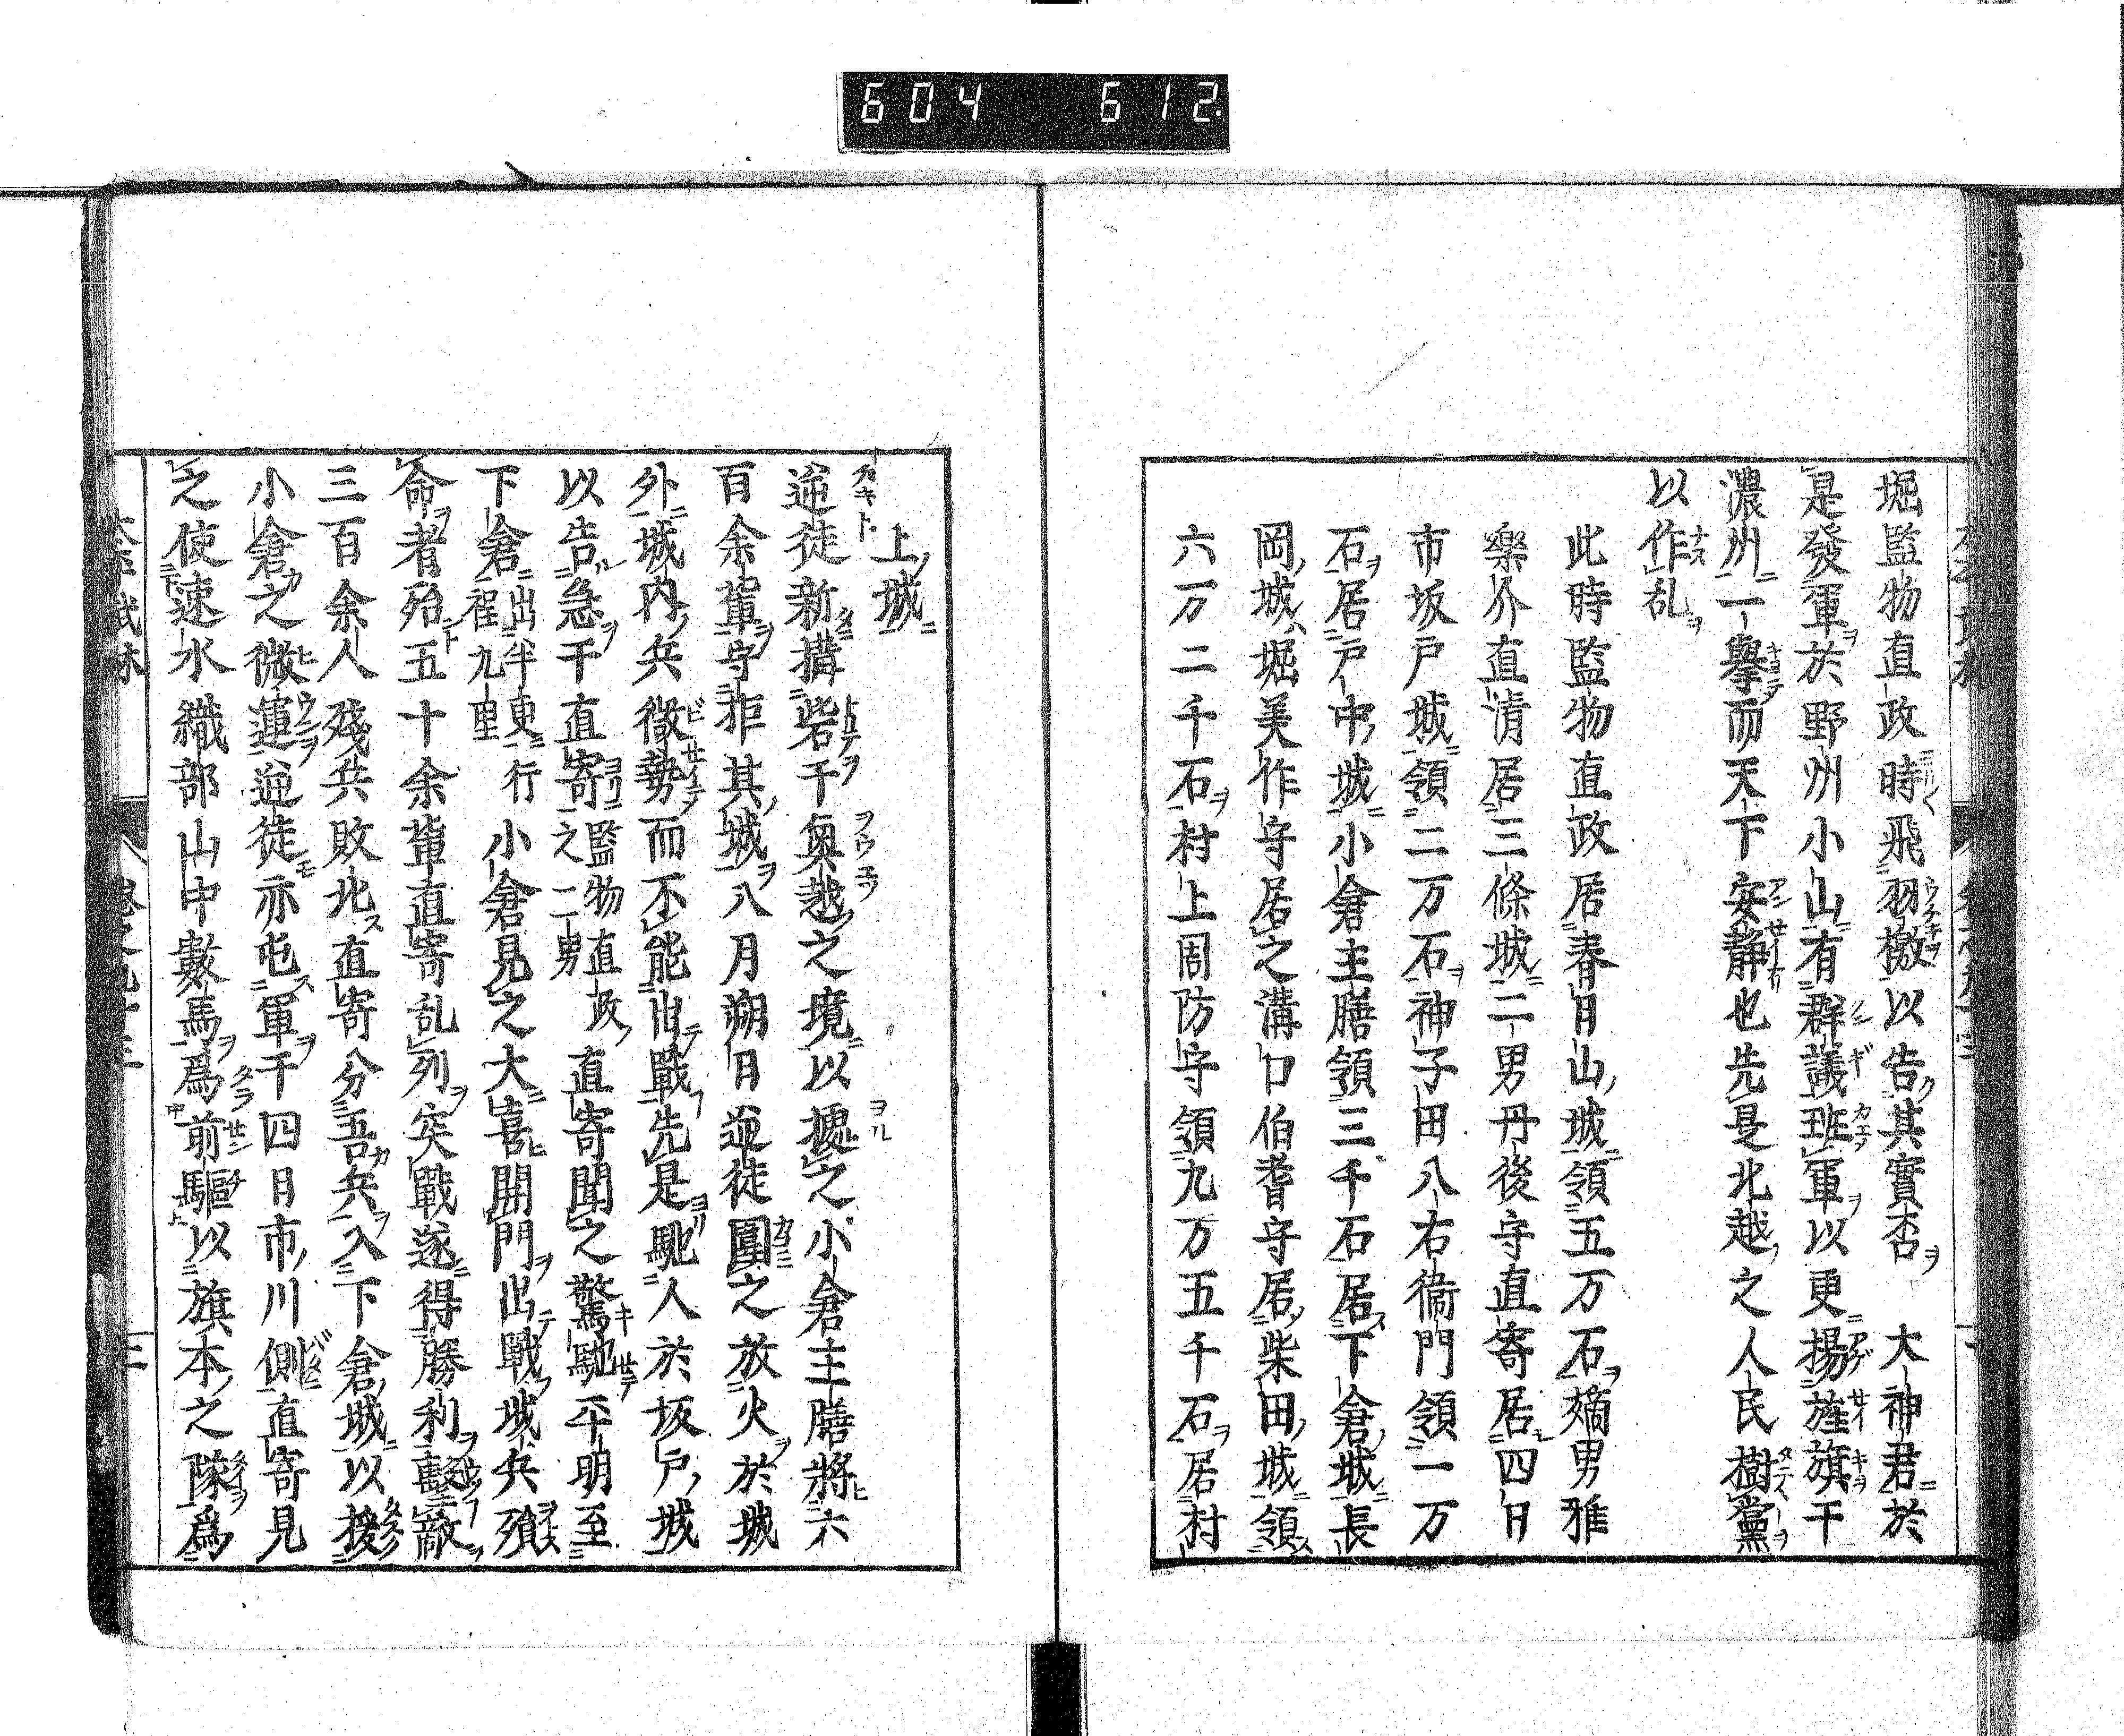 604 612
堀監物直政時飛羽檄以告其實否 大神君於
是發軍於野州小山有群議班軍以更揚旌旗干
濃州一擧而天下安静也先是北越之人民樹黨
以作乱
此時監物直政居春日山城領五万石嫡男雅
樂介直清居三條城二男丹後守直寄居四日
市坂戸城領二万石神子田八右衞門領一万
石居戸中城小倉主膳領三千石居下倉城長
岡城堀美作守居之溝口伯耆守居柴田城領
六万二千石村上周防守領九万五千石居村
上城
逆徒新搆砦干奥越之境以擾之小倉主膳將六
百余軰守拒其城八月朔日逆徒圍之放火於城
外城内兵微勢而不能出戰先是馳人於坂戸城
以告急干直寄監物直政之二男直寄聞之驚馳平明至
下倉出半更行程九里小倉見之大喜開門出戰城兵殞
命者殆五十余軰直寄乱列突戰遂得勝利擊敵
三百余人殘兵敗北直寄分吾兵入下倉城以援
小倉之微運逆徒亦屯軍干四日市川側直寄見
之使速水織部山中數馬爲前驅以旗本之隊爲